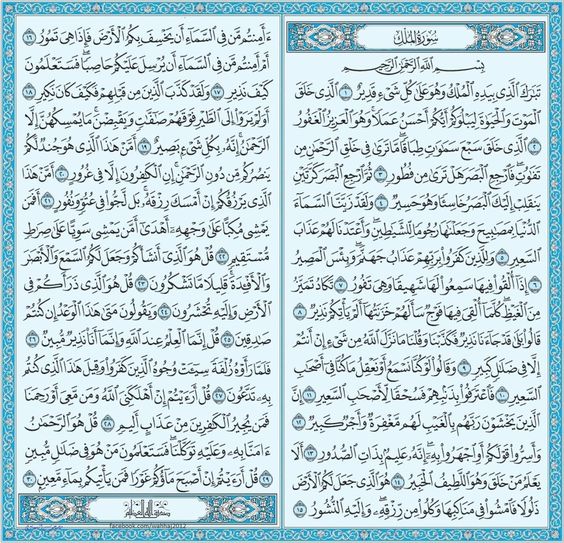 سُورَةُ المُلْكِ
بِسْمِ ٱللَّهِ ٱلرَّحْمَٰنِ ٱلرَّحِيمِ
تَبَٰرَكَ ٱلَّذِى بِيَدِهِ ٱلْمُلْكُ وَهُوَ عَلَىٰ كُلِّ شَىْءٍ قَدِيرٌ ١ ٱلَّذِى خَلَقَ
ٱلْمَوْتَ وَٱلْحَيَوٰةَ لِيَبْلُوَكُمْ أَيُّكُمْ أَحْسَنُ عَمَلًا وَهُوَ ٱلْعَزِيزُ ٱلْغَفُورُ
٢ ٱلَّذِى خَلَقَ سَبْعَ سَمَٰوَٰتٍ طِبَاقًا مَّا تَرَىٰ فِى خَلْقِ ٱلرَّحْمَٰنِ مِن
تَفَٰوُتٍ فَٱرْجِعِ ٱلْبَصَرَ هَلْ تَرَىٰ مِن فُطُورٍ ٣ ثُمَّ ٱرْجِعِ ٱلْبَصَرَ كَرَّتَيْنِ
يَنقَلِبْ إِلَيْكَ ٱلْبَصَرُ خَاسِئًا وَهُوَ حَسِيرٌ ٤ وَلَقَدْ زَيَّنَّا ٱلسَّمَآءَ
ٱلدُّنْيَا بِمَصَٰبِيحَ وَجَعَلْنَٰهَا رُجُومًا لِّلشَّيَٰطِينِ وَأَعْتَدْنَا لَهُمْ عَذَابَ
ٱلسَّعِيرِ ٥ وَلِلَّذِينَ كَفَرُوا۟ بِرَبِّهِمْ عَذَابُ جَهَنَّمَ وَبِئْسَ ٱلْمَصِيرُ
٦ إِذَآ أُلْقُوا۟ فِيهَا سَمِعُوا۟ لَهَا شَهِيقًا وَهِىَ تَفُورُ ٧ تَكَادُ تَمَيَّزُ
مِنَ ٱلْغَيْظِ كُلَّمَآ أُلْقِىَ فِيهَا فَوْجٌ سَأَلَهُمْ خَزَنَتُهَآ أَلَمْ يَأْتِكُمْ نَذِيرٌ ٨
قَالُوا۟ بَلَىٰ قَدْ جَآءَنَا نَذِيرٌ فَكَذَّبْنَا وَقُلْنَا مَا نَزَّلَ ٱللَّهُ مِن شَىْءٍ إِنْ أَنتُمْ
إِلَّا فِى ضَلَٰلٍ كَبِيرٍ ٩ وَقَالُوا۟ لَوْ كُنَّا نَسْمَعُ أَوْ نَعْقِلُ مَا كُنَّا فِىٓ أَصْحَٰبِ
ٱلسَّعِيرِ ١٠ فَٱعْتَرَفُوا۟ بِذَنۢبِهِمْ فَسُحْقًا لِّأَصْحَٰبِ ٱلسَّعِيرِ ١١ إِنَّ
ٱلَّذِينَ يَخْشَوْنَ رَبَّهُم بِٱلْغَيْبِ لَهُم مَّغْفِرَةٌ وَأَجْرٌ كَبِيرٌ ١٢
وَأَسِرُّوا۟ قَوْلَكُمْ أَوِ ٱجْهَرُوا۟ بِهِۦٓ إِنَّهُۥ عَلِيمٌۢ بِذَاتِ ٱلصُّدُورِ ١٣ أَلَا
يَعْلَمُ مَنْ خَلَقَ وَهُوَ ٱللَّطِيفُ ٱلْخَبِيرُ ١٤ هُوَ ٱلَّذِى جَعَلَ لَكُمُ ٱلْأَرْضَ
ذَلُولًا فَٱمْشُوا۟ فِى مَنَاكِبِهَا وَكُلُوا۟ مِن رِّزْقِهِۦ وَإِلَيْهِ ٱلنُّشُورُ ١٥
ءَأَمِنتُم مَّن فِى ٱلسَّمَآءِ أَن يَخْسِفَ بِكُمُ ٱلْأَرْضَ فَإِذَا هِىَ تَمُورُ ١٦
أَمْ أَمِنتُم مَّن فِى ٱلسَّمَآءِ أَن يُرْسِلَ عَلَيْكُمْ حَاصِبًا فَسَتَعْلَمُونَ
كَيْفَ نَذِيرِ ١٧ وَلَقَدْ كَذَّبَ ٱلَّذِينَ مِن قَبْلِهِمْ فَكَيْفَ كَانَ نَكِيرِ ١٨
أَوَلَمْ يَرَوْا۟ إِلَى ٱلطَّيْرِ فَوْقَهُمْ صَٰٓفَّٰتٍ وَيَقْبِضْنَ مَا يُمْسِكُهُنَّ إِلَّا
ٱلرَّحْمَٰنُ إِنَّهُۥ بِكُلِّ شَىْءٍۭ بَصِيرٌ ١٩ أَمَّنْ هَٰذَا ٱلَّذِى هُوَ جُندٌ لَّكُمْ
يَنصُرُكُم مِّن دُونِ ٱلرَّحْمَٰنِ إِنِ ٱلْكَٰفِرُونَ إِلَّا فِى غُرُورٍ ٢٠ أَمَّنْ هَٰذَا
ٱلَّذِى يَرْزُقُكُمْ إِنْ أَمْسَكَ رِزْقَهُۥ بَل لَّجُّوا۟ فِى عُتُوٍّ وَنُفُورٍ ٢١ أَفَمَن
يَمْشِى مُكِبًّا عَلَىٰ وَجْهِهِۦٓ أَهْدَىٰٓ أَمَّن يَمْشِى سَوِيًّا عَلَىٰ صِرَٰطٍ
مُّسْتَقِيمٍ ٢٢ قُلْ هُوَ ٱلَّذِىٓ أَنشَأَكُمْ وَجَعَلَ لَكُمُ ٱلسَّمْعَ وَٱلْأَبْصَٰرَ
وَٱلْأَفْـِٔدَةَ قَلِيلًا مَّا تَشْكُرُونَ ٢٣ قُلْ هُوَ ٱلَّذِى ذَرَأَكُمْ فِى
ٱلْأَرْضِ وَإِلَيْهِ تُحْشَرُونَ ٢٤ وَيَقُولُونَ مَتَىٰ هَٰذَا ٱلْوَعْدُ إِن كُنتُمْ
صَٰدِقِينَ ٢٥ قُلْ إِنَّمَا ٱلْعِلْمُ عِندَ ٱللَّهِ وَإِنَّمَآ أَنَا۠ نَذِيرٌ مُّبِينٌ ٢٦
فَلَمَّا رَأَوْهُ زُلْفَةً سِيٓـَٔتْ وُجُوهُ ٱلَّذِينَ كَفَرُوا۟ وَقِيلَ هَٰذَا ٱلَّذِى كُنتُم
بِهِۦ تَدَّعُونَ ٢٧ قُلْ أَرَءَيْتُمْ إِنْ أَهْلَكَنِىَ ٱللَّهُ وَمَن مَّعِىَ أَوْ رَحِمَنَا
فَمَن يُجِيرُ ٱلْكَٰفِرِينَ مِنْ عَذَابٍ أَلِيمٍ ٢٨ قُلْ هُوَ ٱلرَّحْمَٰنُ
ءَامَنَّا بِهِۦ وَعَلَيْهِ تَوَكَّلْنَا فَسَتَعْلَمُونَ مَنْ هُوَ فِى ضَلَٰلٍ مُّبِينٍ
٢٩ قُلْ أَرَءَيْتُمْ إِنْ أَصْبَحَ مَآؤُكُمْ غَوْرًا فَمَن يَأْتِيكُم بِمَآءٍ مَّعِينٍۭ ٣٠
صدق الله العظيم
facebook.com/wahhaj2012